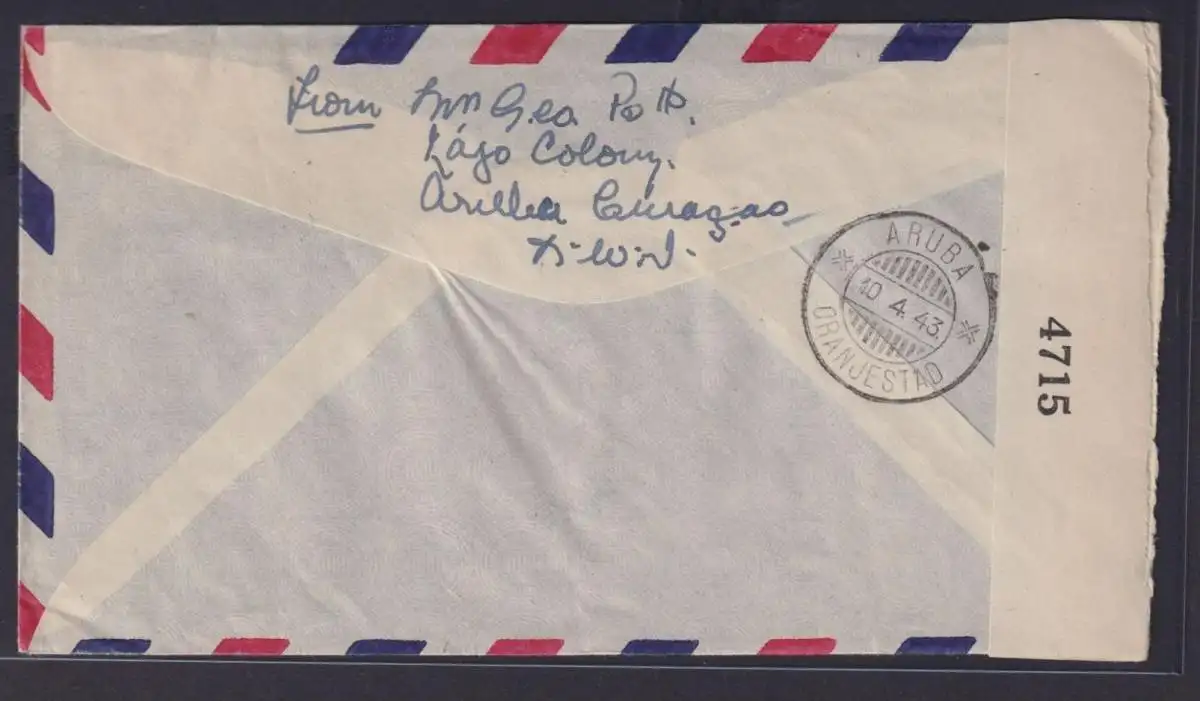 From Mrs Geo Potts.
Lago Colony.
Aruba Curaçao
N.W.I.
ARUBA
10 4.43.
ORANJESTAD
4715